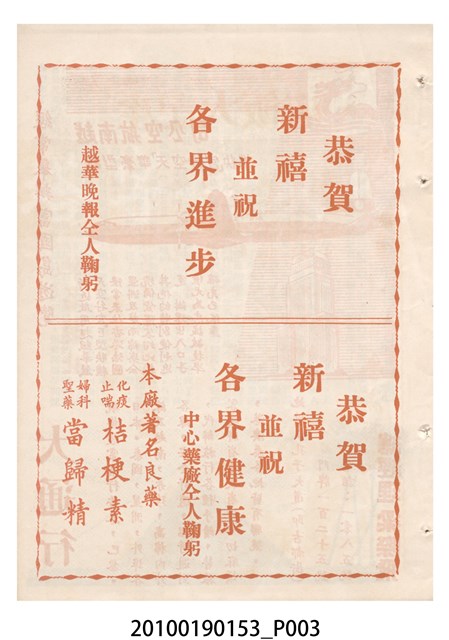 恭賀
新禧
並祝
各界進步
越華晚報仝人鞠躬
恭賀
新禧
並祝
各界健康
中心藥廠仝人鞠躬
本廠著名良藥
化痰止喘 桔梗素
婦科聖藥 當歸精
20100190153_P003